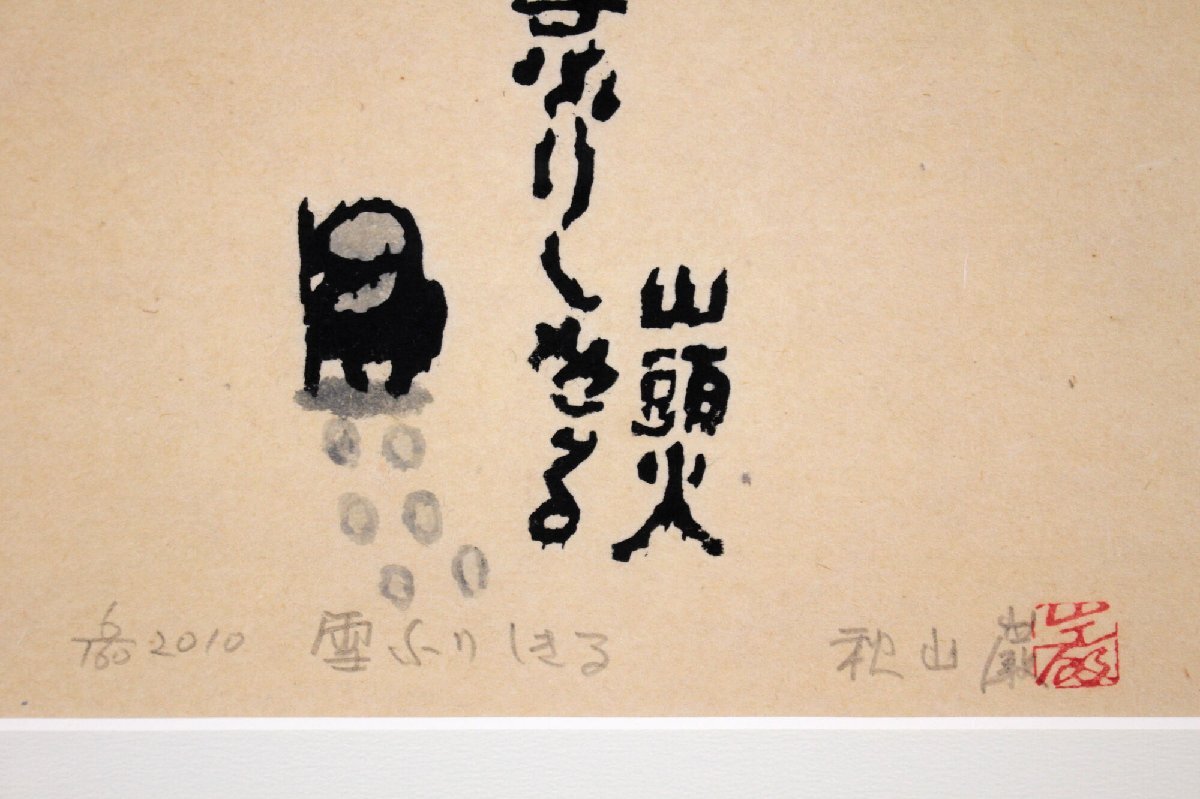 雪ふりしきる
山頭火
6/100 2010 雪ふりしきる 秋山巌